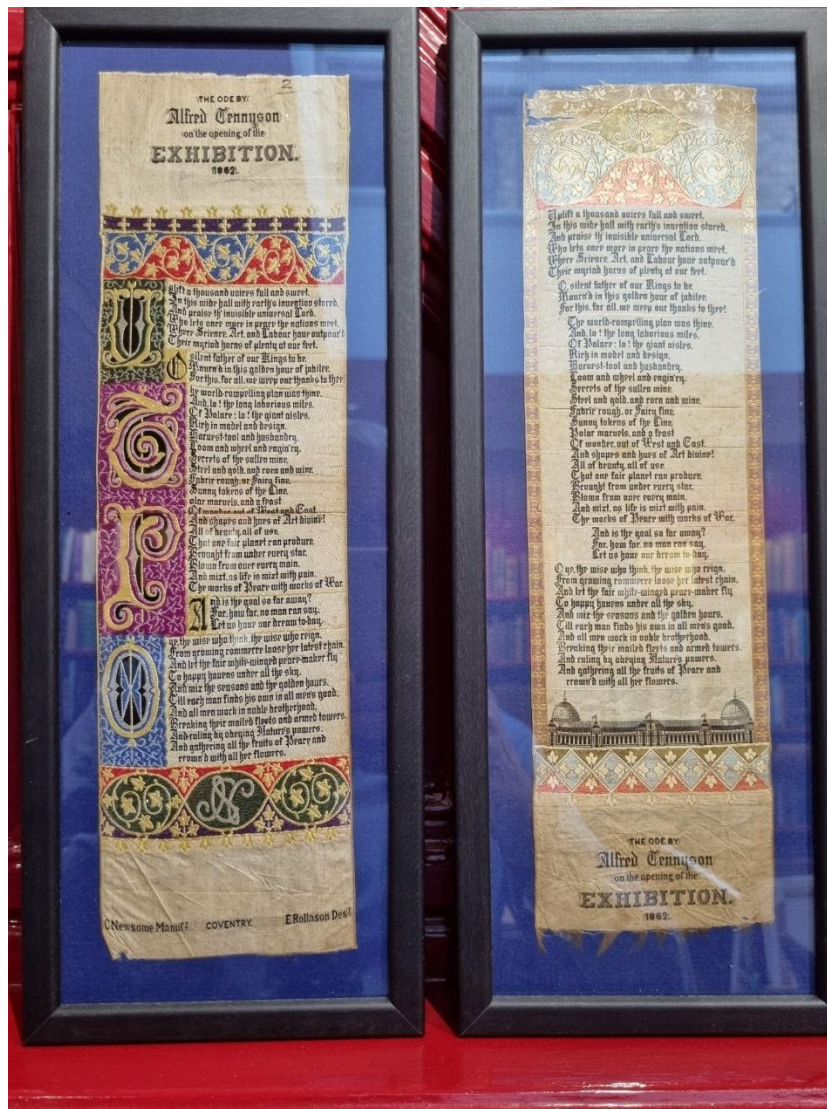 2
THE ODE BY
Alfred Tennyson
on the opening of the
EXHIBITION.
1862.
Uplift a thousand voices full and sweet,
In this wide hall with earth's invention stored,
And praise th' invisible universal Lord,
Who lets once more in peace the nations meet,
Where Science, Art, and Labour have outpour'd
Their myriad horns of plenty at our feet.
O silent father of our Kings to be.
Mourn'd in this golden hour of jubilee,
For this, for all, we weep our thanks to thee!
The world-compelling plan was thine,
And, lo! the long laborious miles.
Of Palace: lo! the giant aisles,
Rich in model and design.
Harvest-tool and husbandry,
Loom and wheel and engin'ry,
Secrets of the sullen mine,
Steel and gold, and corn and wine,
Fabric rough, or Fairy fine,
Sunny tokens of the Line,
Polar marvels, and a feast
Of wonder, out of West and East,
And shapes and hues of Art divine!
All of beauty, all of use,
That one fair planet can produce,
Brought from under every star,
Blown from over every main,
And mixt, as life is mixt with pain,
The works of Peace with works of War.
And is the goal so far away?
Far, how far, no man can say,
Let us have our dream to-day.
O ye, the wise who think, the wise who reign,
From growing commerce loose her latest chain,
And let the fair white-winged peace-maker fly
To happy havens under all the sky,
And mix the seasons and the golden hours,
Till each man finds his own in all men's good,
And all men work in noble brotherhood,
Breaking their mailed fleets and armed towers,
And ruling by obeying Nature's powers,
And gathering all the fruits of Peace and
crown'd with all her flowers.
C Newsome Manufr. COVENTRY. E Rollason Desr.
Uplift a thousand voices full and sweet,
In this wide hall with earth's invention stored,
And praise th' invisible universal Lord,
Who lets once more in peace the nations meet,
Where Science, Art, and Labour have outpour'd
Their myriad horns of plenty at our feet.
O, silent father of our Kings to be.
Mourn'd in this golden hour of jubilee,
For this, for all, we weep our thanks to thee!
The world-compelling plan was thine,
And, lo! the long laborious miles,
Of Palace: lo! the giant aisles,
Rich in model and design,
Harvest-tool and husbandry,
Loom and wheel and engin'ry,
Secrets of the sullen mine,
Steel and gold, and corn and wine,
Fabric rough, or Fairy fine,
Sunny tokens of the Line,
Polar marvels, and a feast
Of wonder, out of West and East,
And shapes and hues of Art divine!
All of beauty, all of use,
That one fair planet can produce,
Brought from under every star,
Blown from over every main,
And mixt, as life is mixt with pain,
The works of Peace with works of War.
And is the goal so far away?
Far, how far, no man can say,
Let us have our dream to-day.
O ye, the wise who think, the wise who reign,
From growing commerce loose her latest chain,
And let the fair white-winged peace-maker fly
To happy havens under all the sky,
And mix the seasons and the golden hours,
Till each man finds his own in all men's good,
And all men work in noble brotherhood,
Breaking their mailed fleets and armed towers,
And ruling by obeying Nature's powers,
And gathering all the fruits of Peace and
crown'd with all her flowers.
THE ODE BY
Alfred Tennyson
on the opening of the
EXHIBITION.
1862.